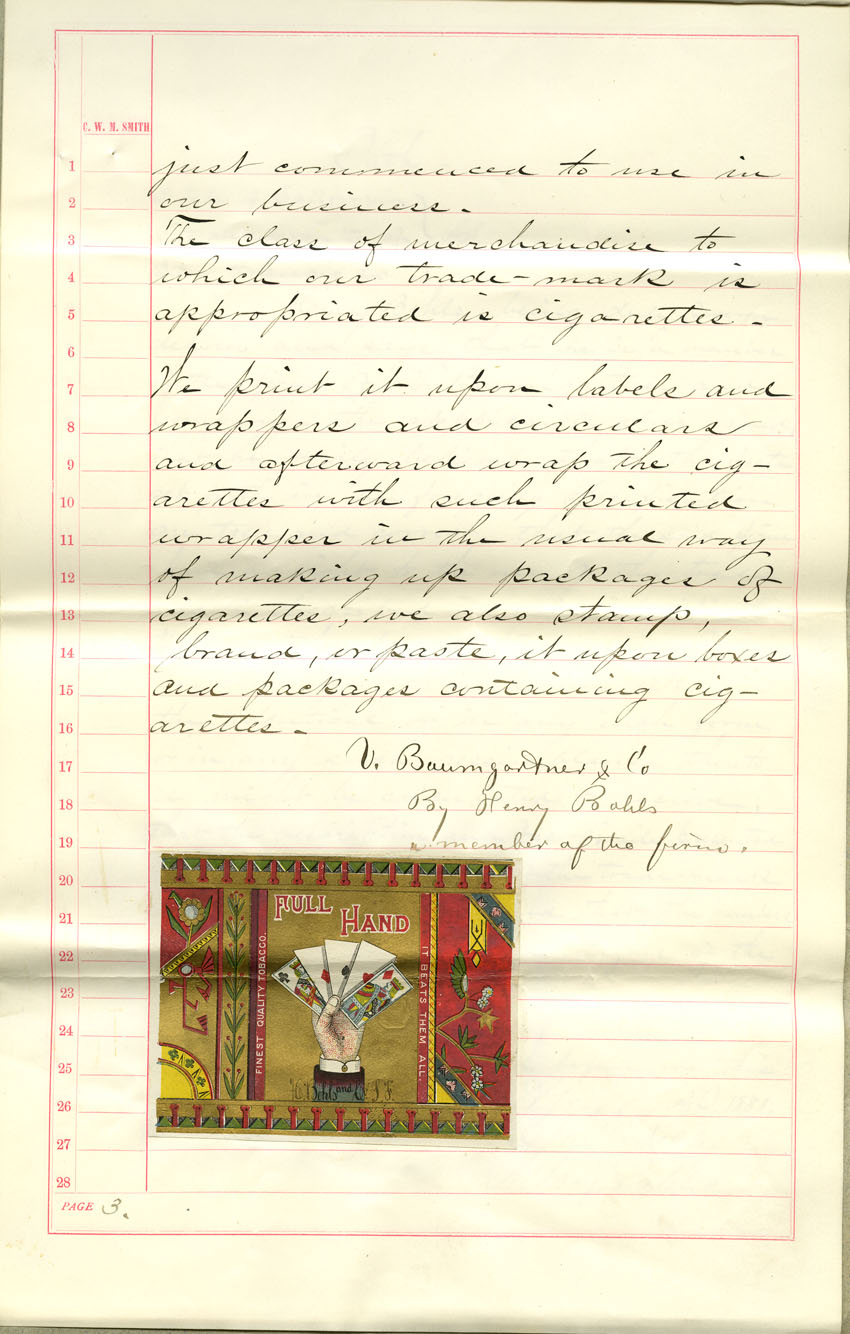 C. W. M. SMITH
1 just commenced to use in
2 our business.
3 The class of merchandise to
4 which our trade-mark is
5 appropriated is cigarettes.
6
7 We print it upon labels and
8 wrappers and circulars
9 and afterward wrap the cig-
10 arettes with such printed
11 wrapper in the usual way
12 of making up packages of
13 cigarettes, we also stamp,
14 brand, or paste, it upon boxes
15 and packages containing cig-
16 arettes.
17 V. Baumgartner & Co
18 By Henry Bohls
19 a member of the firm.
20
21
22
23
24
25
26
27
28
FULL HAND
FINEST QUALITY TOBACCO.
IT BEATS THEM ALL.
H. Bohls and Co. S. F.
PAGE 3.